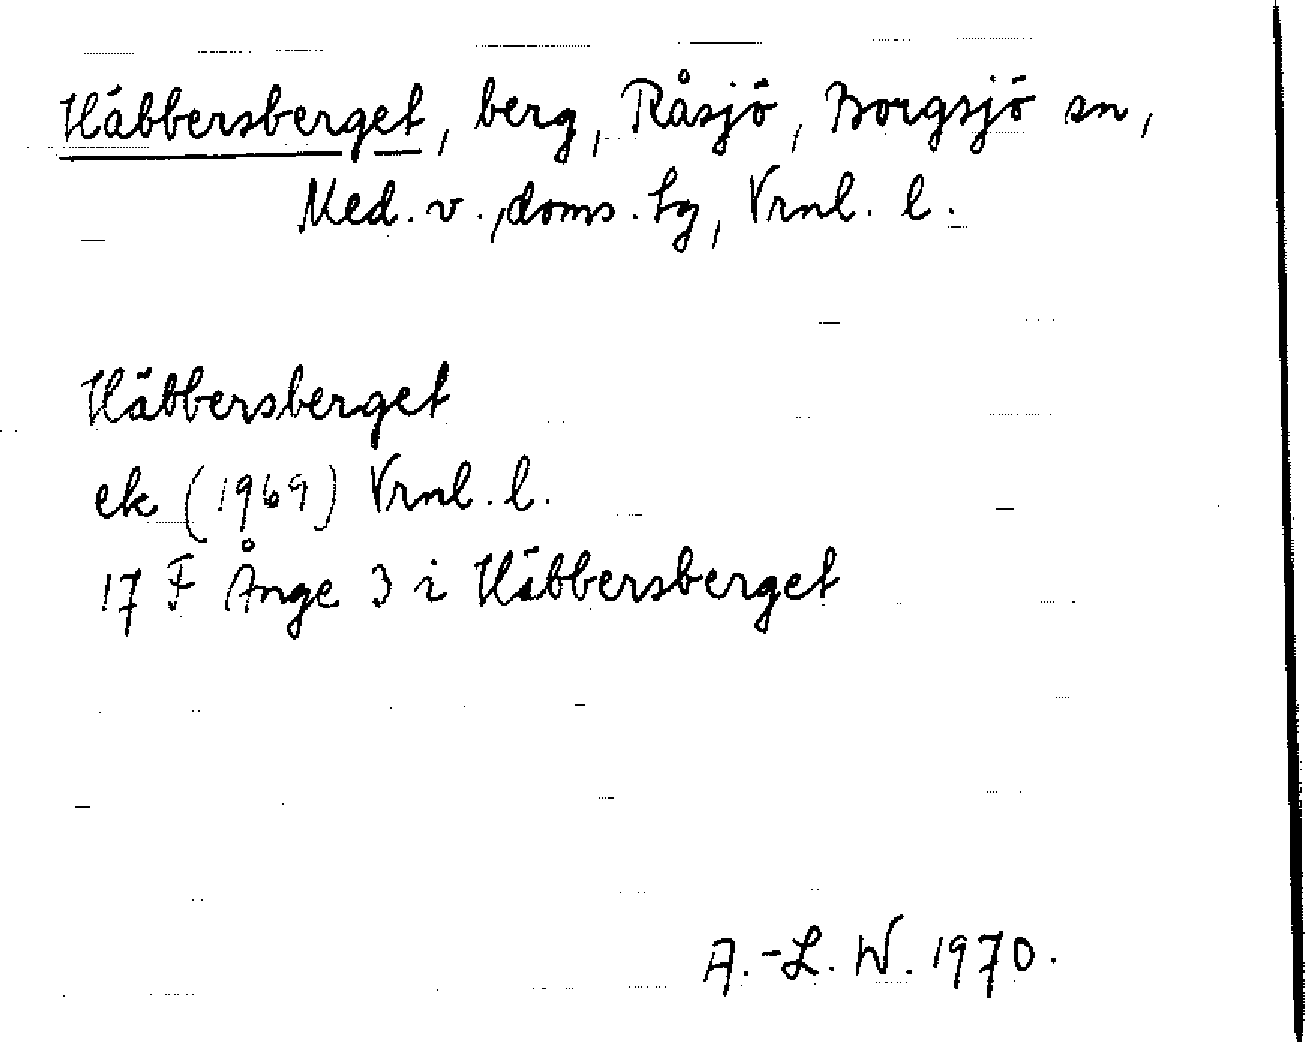 Häbbersberget, berg, Råsjö, Borgsjö sn,
Med. v., doms. hg, Vrnl. l.
Häbbersberget
ek (1969) Vrnl. l.
17 F Ånge 3 i Häbbersberget
A.-L. W. 1970.